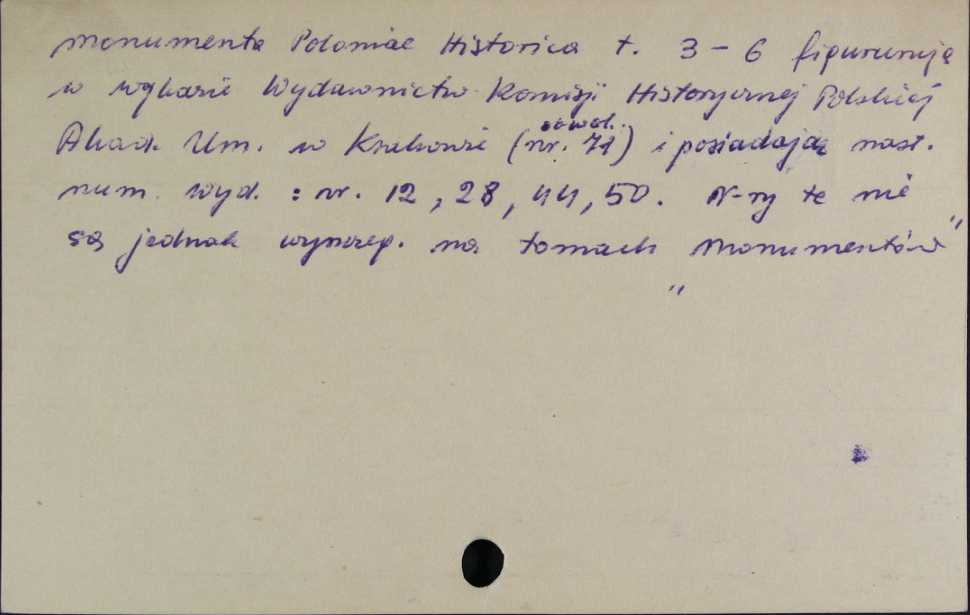 Monumenta Poloniae Historica t. 3-6 figurunują
w wykazie Wydawnictw Komisji Historycznej Polskiej
Akad. Um. w Krakowie (nr. 71) i posiadają nast.
num. wyd. : nr. 12, 28, 44, 50. N-ry te nie
są jednak wyszczeg. na tomach „Monumentów"